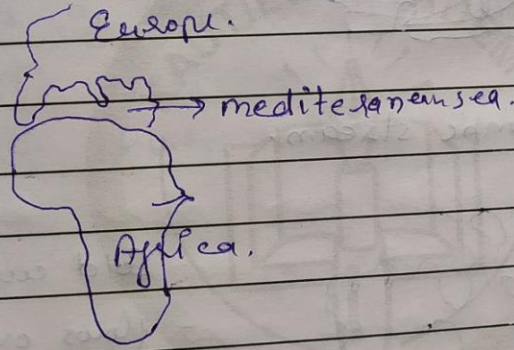 Europe.
mediteraneansea.
Africa.